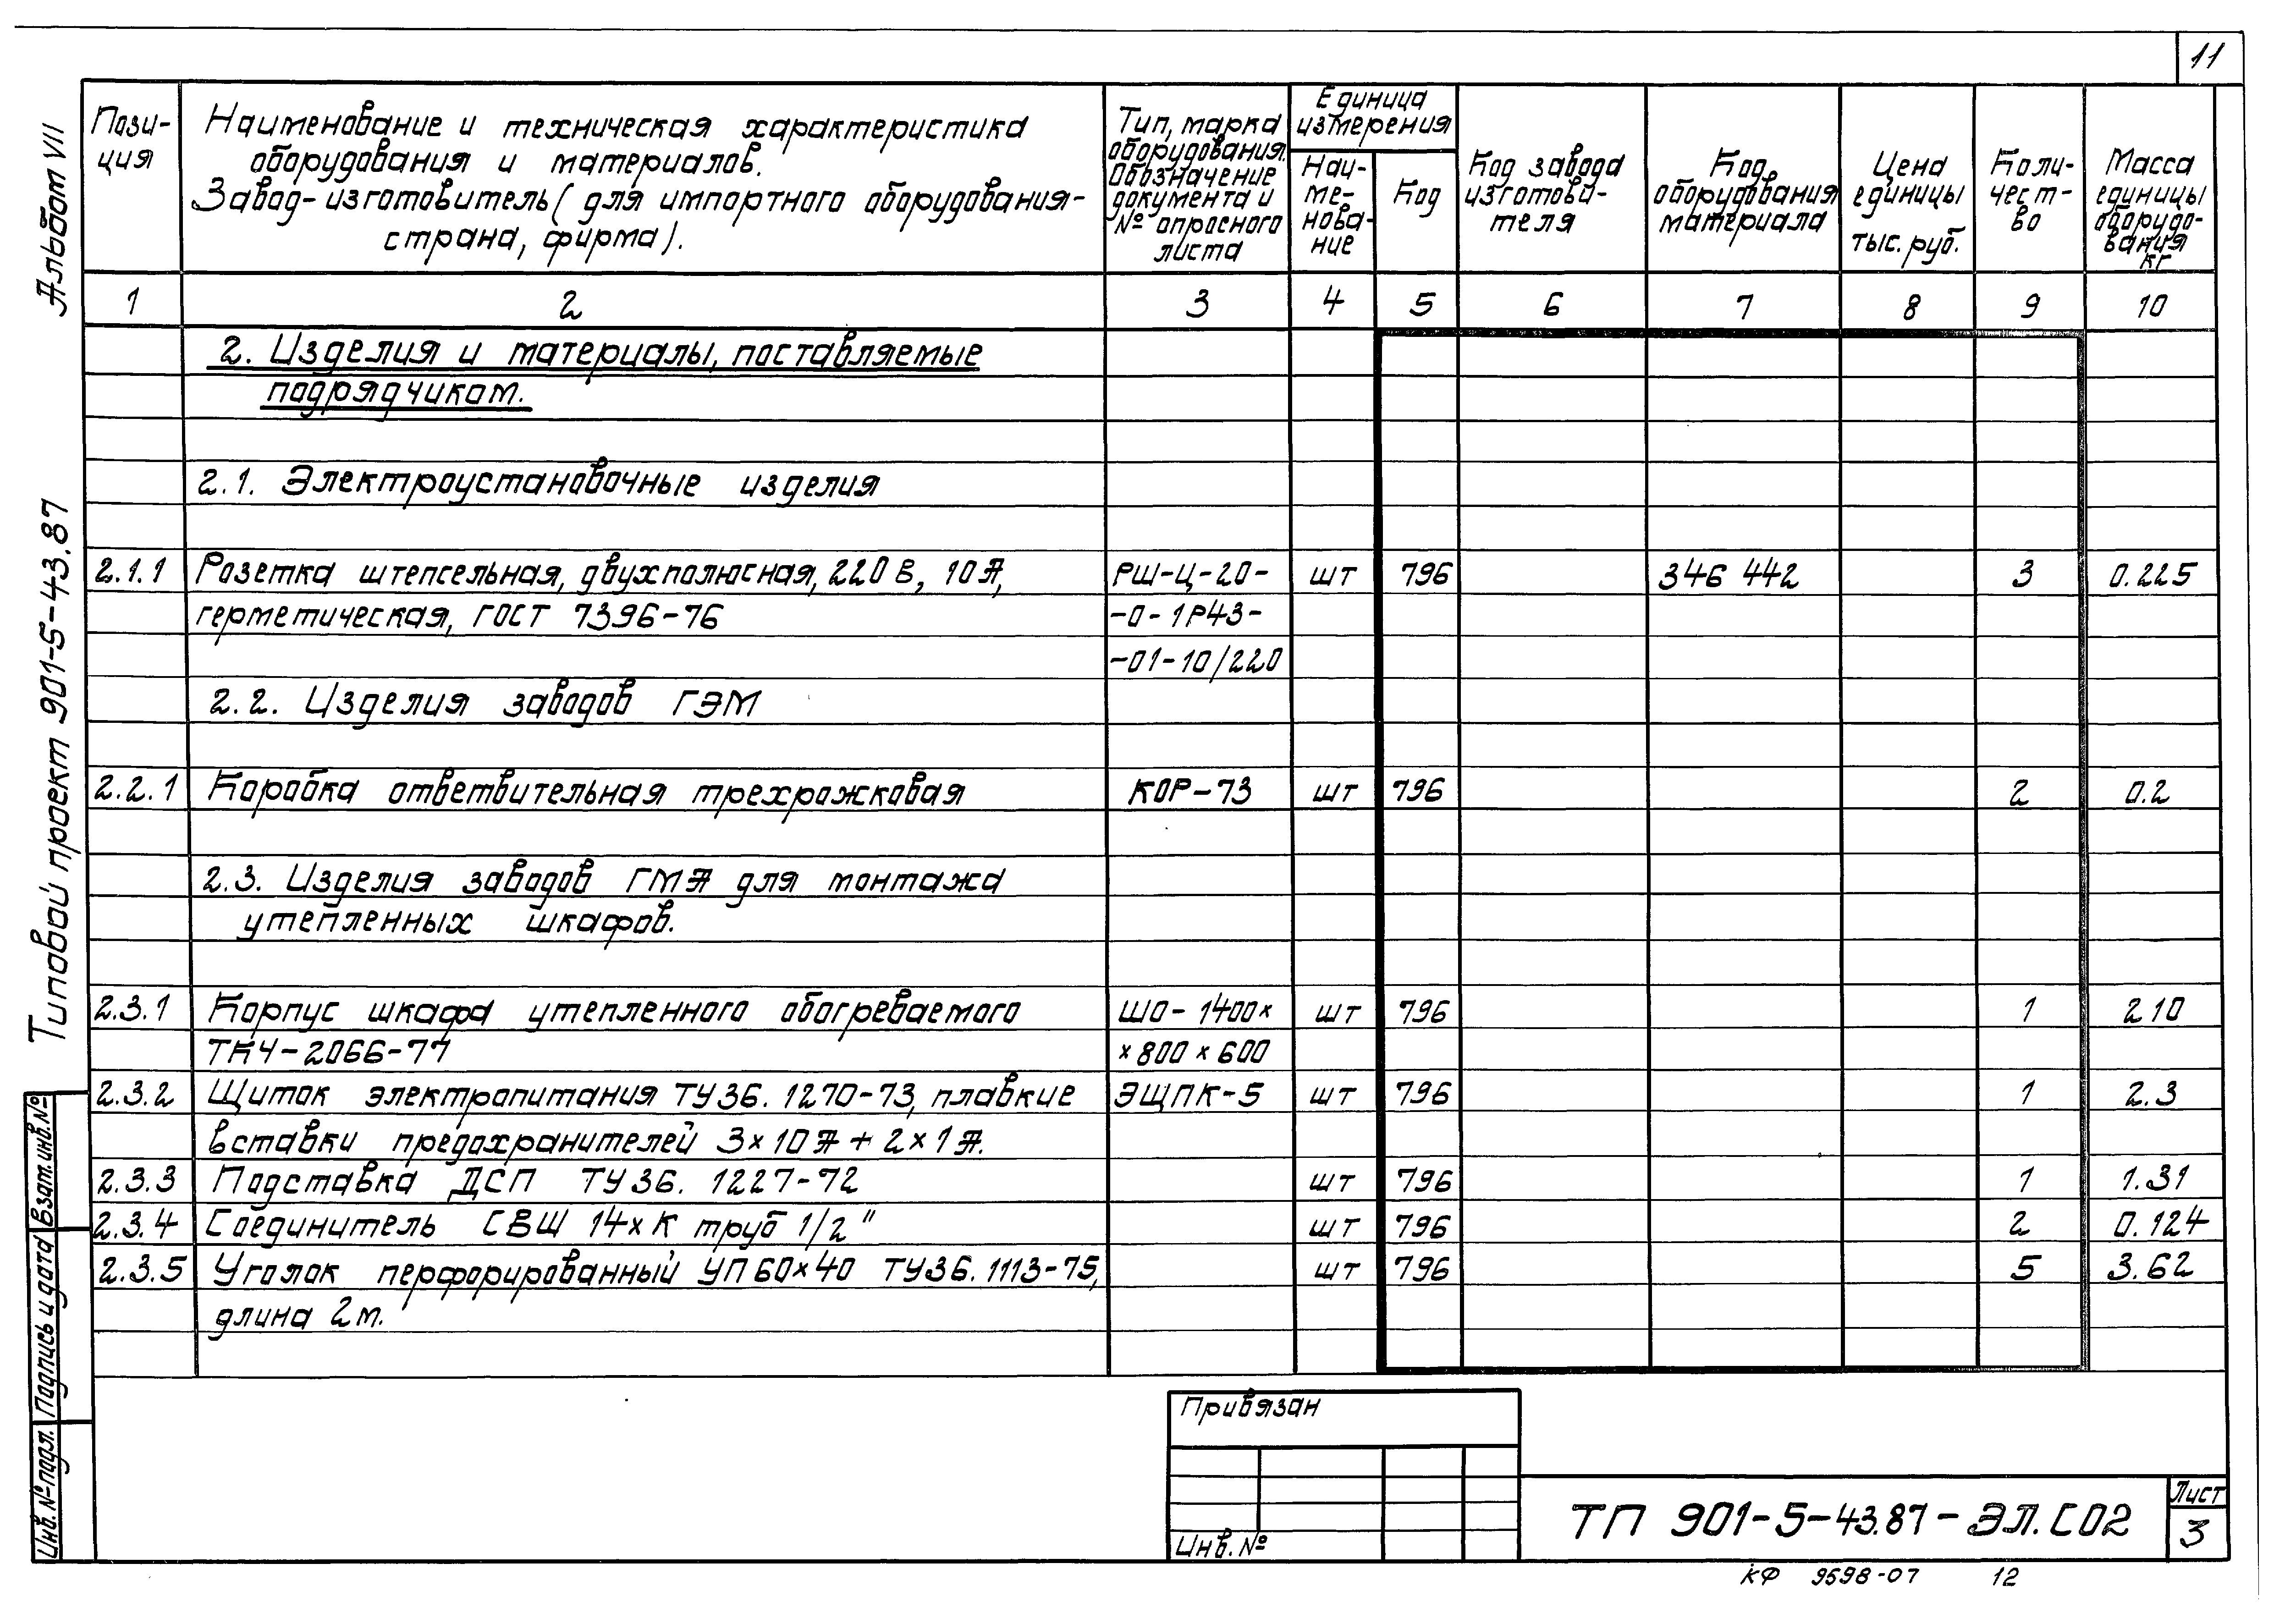 11
Альбом VII
Типовой проект 901-5-43.87
Пози-
ция
Наименование и техническая характеристика
оборудования и материалов.
Завод-изготовитель (для импортного оборудования-
страна, фирма).
Тип, марка
оборудования.
Обозначение
документа и
№ опросного
листа
Единица
измерения
Наи-
ме-
нова-
ние
Код
Код завода
изготови-
теля
Код
оборудования
материала
Цена
единицы
тыс. руб.
Коли-
чест-
во
Масса
единицы
оборудо-
вания
кг
1 2 3 4 5 6 7 8 9 10
2. Изделия и материалы, поставляемые
подрядчиком.
2.1. Электроустановочные изделия
2.1.1 Розетка штепсельная, двухполюсная, 220 В, 10 А, РШ-Ц-20- шт 796 346 442 3 0.225
герметическая, ГОСТ 7396-76 -0-1Р43-
-01-10/220
2.2. Изделия заводов ГЭМ
2.2.1 Коробка ответвительная трехрожковая КОР-73 шт 796 2 0.2
2.3. Изделия заводов ГМА для монтажа
утепленных шкафов.
2.3.1 Корпус шкафа утепленного обогреваемого ШО-1400× шт 796 1 210
ТК4-2066-77 ×800×600
2.3.2 Щиток электропитания ТУ36.1270-73, плавкие ЭЩПК-5 шт 796 1 2.3
вставки предохранителей 3×10А + 2×1А.
2.3.3 Подставка ДСП ТУ36. 1227-72 шт 796 1 1.31
2.3.4 Соединитель СВЩ 14×К труб 1/2" шт 796 2 0.124
2.3.5 Уголок перфорированный УП 60×40 ТУ36.1113-75, шт 796 5 3.62
длина 2м.
Взам.инв.№
Подпись и дата
Инв.№ подл.
Привязан
Инв. №
ТП 901-5-43.87-ЭЛ.СО2
Лист
3
КФ 9598-07 12